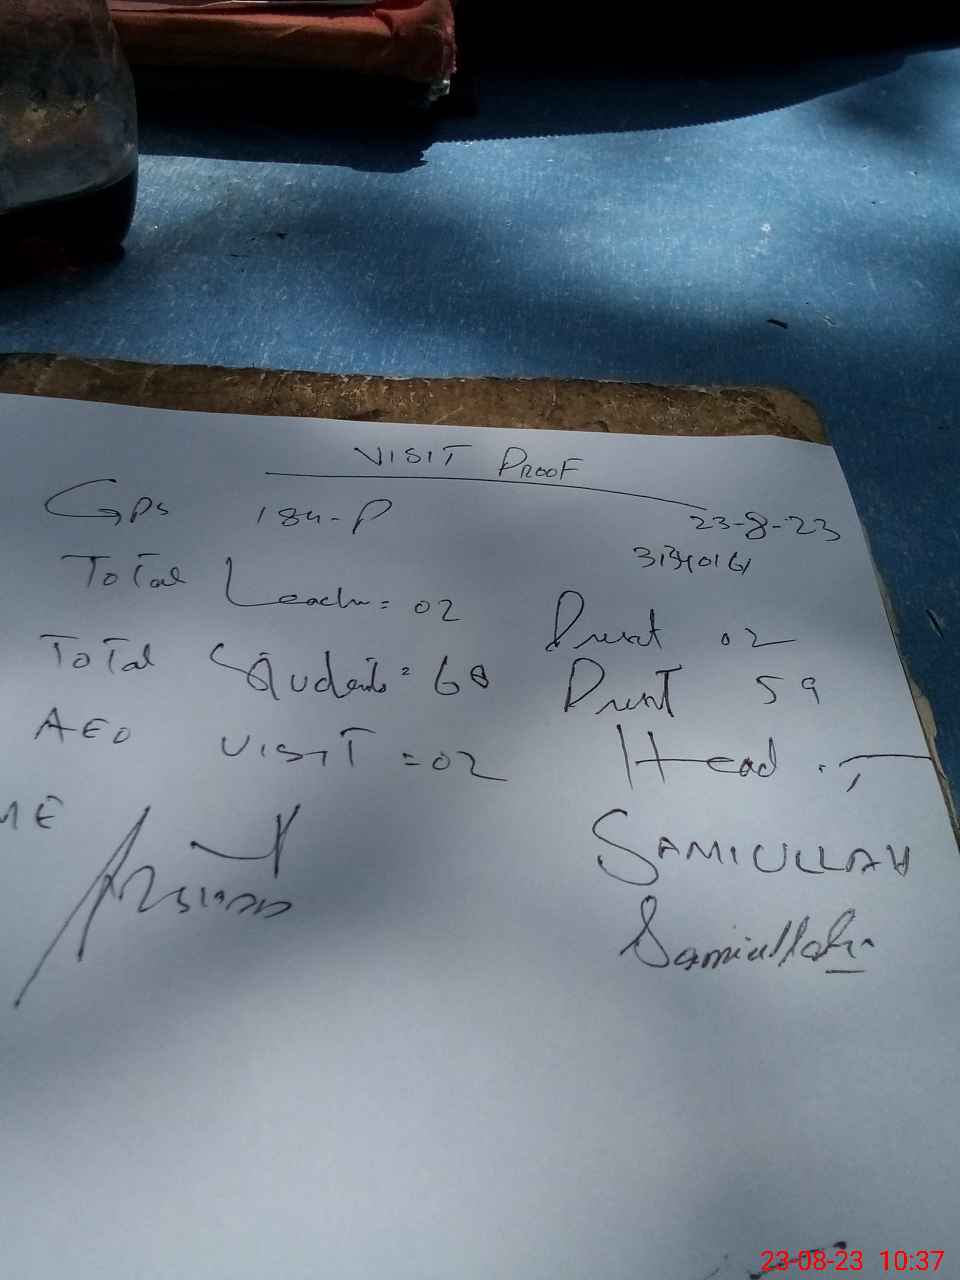 VISIT PROOF
GPS 184-P 23-8-23
31340161
ToTal Teach = 02 Present 02
ToTal Students = 68 Present 59
AEO VISIT = 02 Head
ME SAMIULLAH
Samiullah
23-08-23 10:37